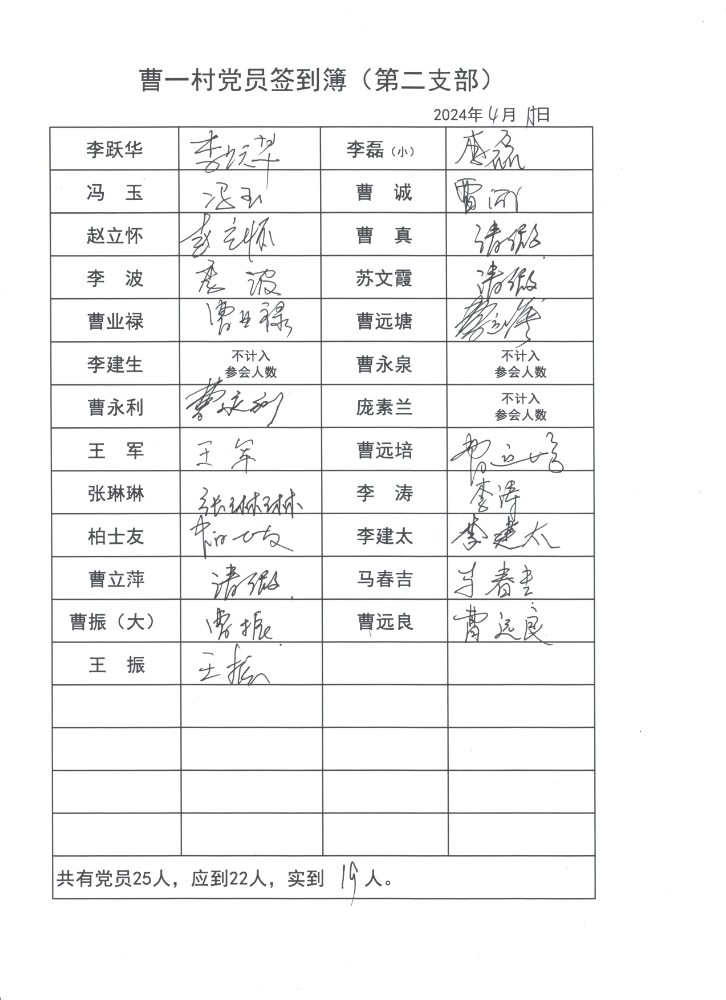 曹一村党员签到簿（第二支部）
2024年4月15日
李跃华 李跃华 李磊（小） 李磊
冯 玉 冯玉 曹 诚 曹诚
赵立怀 赵立怀 曹 真 请假
李 波 李波 苏文霞 请假
曹业禄 曹业禄 曹远塘 曹远塘
李建生 不计入 曹永泉 不计入
参会人数 参会人数
曹永利 曹永利 庞素兰 不计入
参会人数
王 军 王军 曹远培 曹远培
张琳琳 张琳琳 李 涛 李涛
柏士友 柏士友 李建太 李建太
曹立萍 请假 马春吉 马春吉
曹振（大） 曹振 曹远良 曹远良
王 振 王振
共有党员25人，应到22人，实到 19 人。